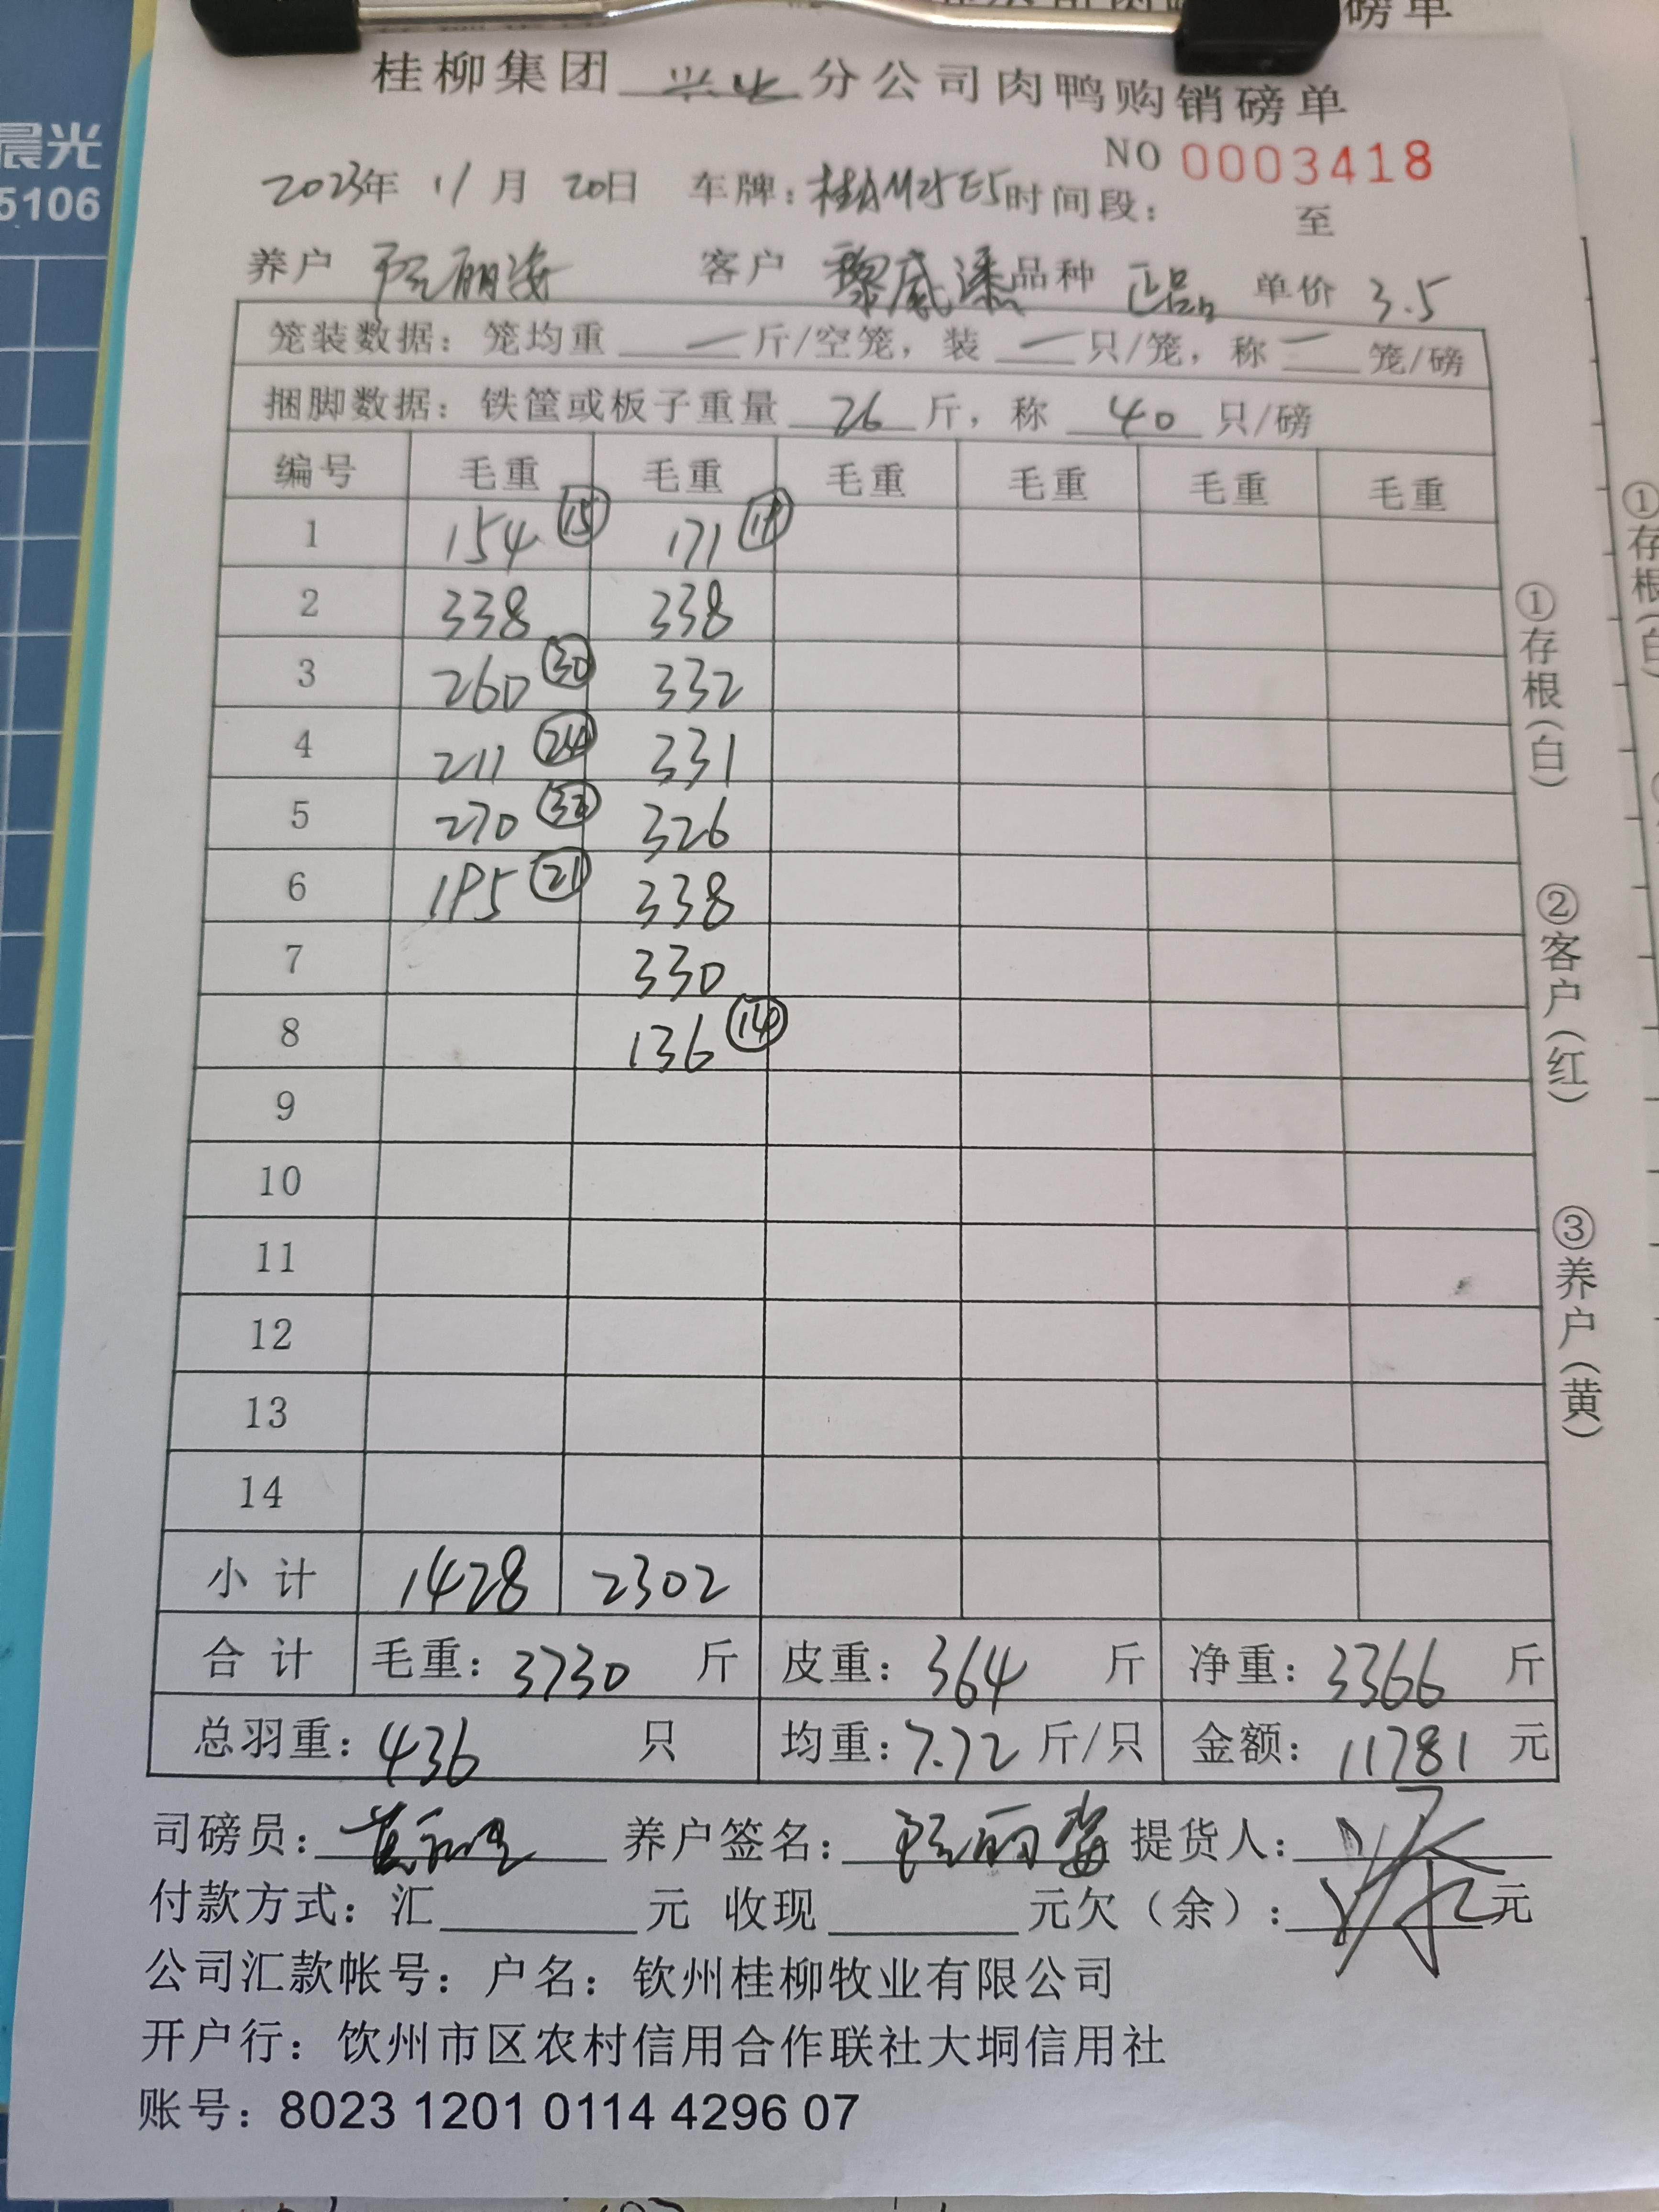 磅单
晨光
5106
桂柳集团 兴业 分公司肉鸭购销磅单
NO 0003418
2023年 11月 20日 车牌: 时间段: 至
养户 客户 黎威 品种 正品 单价 3.5
笼装数据: 笼均重 — 斤/空笼, 装 — 只/笼, 称 — 笼/磅
捆脚数据: 铁筐或板子重量 26 斤, 称 40 只/磅
编号 毛重 毛重 毛重 毛重 毛重 毛重
1 154 ⑮ 171
2 338 338
3 260 ㉚ 332
4 211 ㉔ 331
5 270 326
6 195 ㉑ 338
7 330
8 136 ⑭
9
10
11
12
13
14
小计 1428 2302
合计 毛重: 3730 斤 皮重: 364 斤 净重: 3366 斤
总羽重: 436 只 均重: 7.72 斤/只 金额: 11781 元
司磅员: 养户签名: 提货人:
付款方式: 汇 元 收现 元欠(余): 元
公司汇款帐号: 户名: 钦州桂柳牧业有限公司
开户行: 饮州市区农村信用合作联社大垌信用社
账号: 8023 1201 0114 4296 07
①存根(白)
②客户(红)
③养户(黄)
①存根(白)